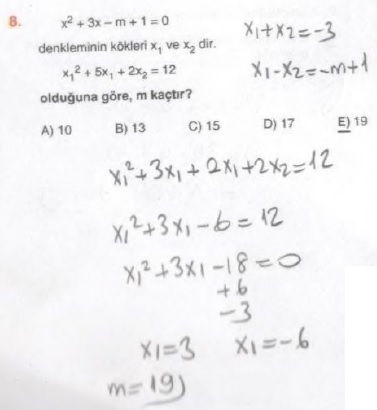 8. x² + 3x – m + 1 = 0
x1+x2=-3
denkleminin kökleri x₁ ve x₂ dir.
x₁² + 5x₁ + 2x₂ = 12
x1-x2=-m+1
olduğuna göre, m kaçtır?
A) 10 B) 13 C) 15 D) 17 E) 19
x1²+3x1+2x1+2x2=12
x1²+3x1-6=12
x1²+3x1-18=0
+6
-3
x1=3 x1=-6
m=19)